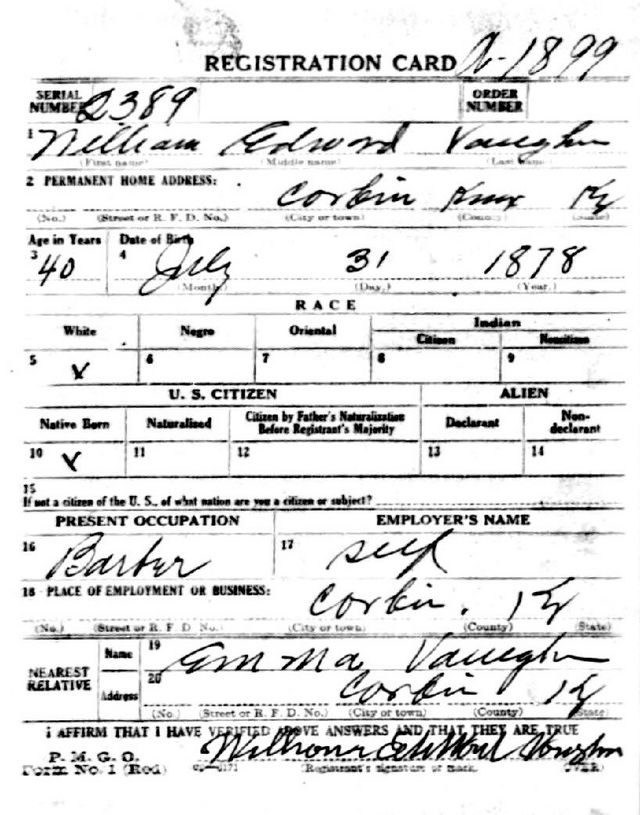 REGISTRATION CARD A-1899
SERIAL NUMBER 2389 ORDER NUMBER
1 William Edward Vaughn
(First name) (Middle name) (Last name)
2 PERMANENT HOME ADDRESS: Corbin Knox Ky
(No.) (Street or R. F. D. No.) (City or town) (County) (State)
Age in Years Date of Birth
3 40 4 July 31 1878
(Month) (Day.) (Year.)
RACE
White Negro Oriental Indian
Citizen Noncitizen
5 V 6 7 8 9
U. S. CITIZEN ALIEN
Native Born Naturalized Citizen by Father's Naturalization Before Registrant's Majority Declarant Non-declarant
10 V 11 12 13 14
15
If not a citizen of the U. S., of what nation are you a citizen or subject?
PRESENT OCCUPATION EMPLOYER'S NAME
16 Barber 17 self
18 PLACE OF EMPLOYMENT OR BUSINESS: Corbin. Ky
(No.) (Street or R. F. D. No.) (City or town) (County) (State)
NEAREST RELATIVE Name 19 Emma Vaughn
Address 20 Corbin Ky
(No.) (Street or R. F. D. No.) (City or town) (County) (State)
I AFFIRM THAT I HAVE VERIFIED ABOVE ANSWERS AND THAT THEY ARE TRUE
P. M. G. O.
Form No. 1 (Red) (Registrant's signature or mark) (OVER)